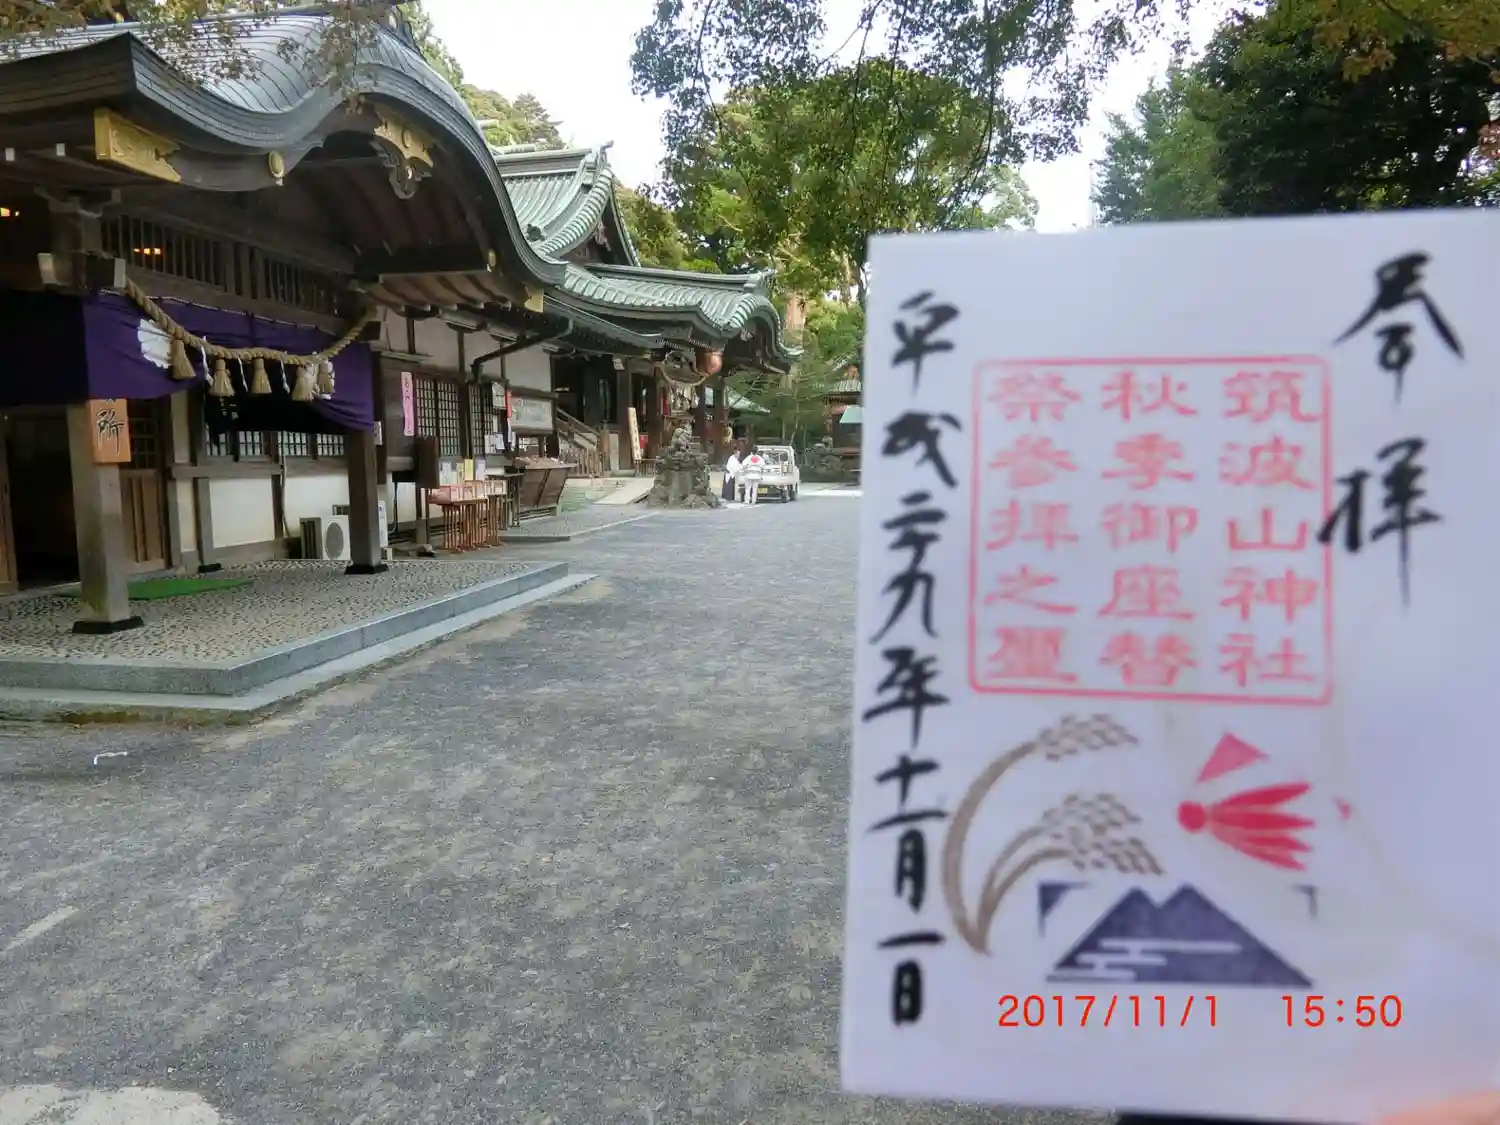 参拝
筑波山神社
秋季御座替
祭参拝之璽
平成二十九年十一月一日
所
2017/11/1 15:50